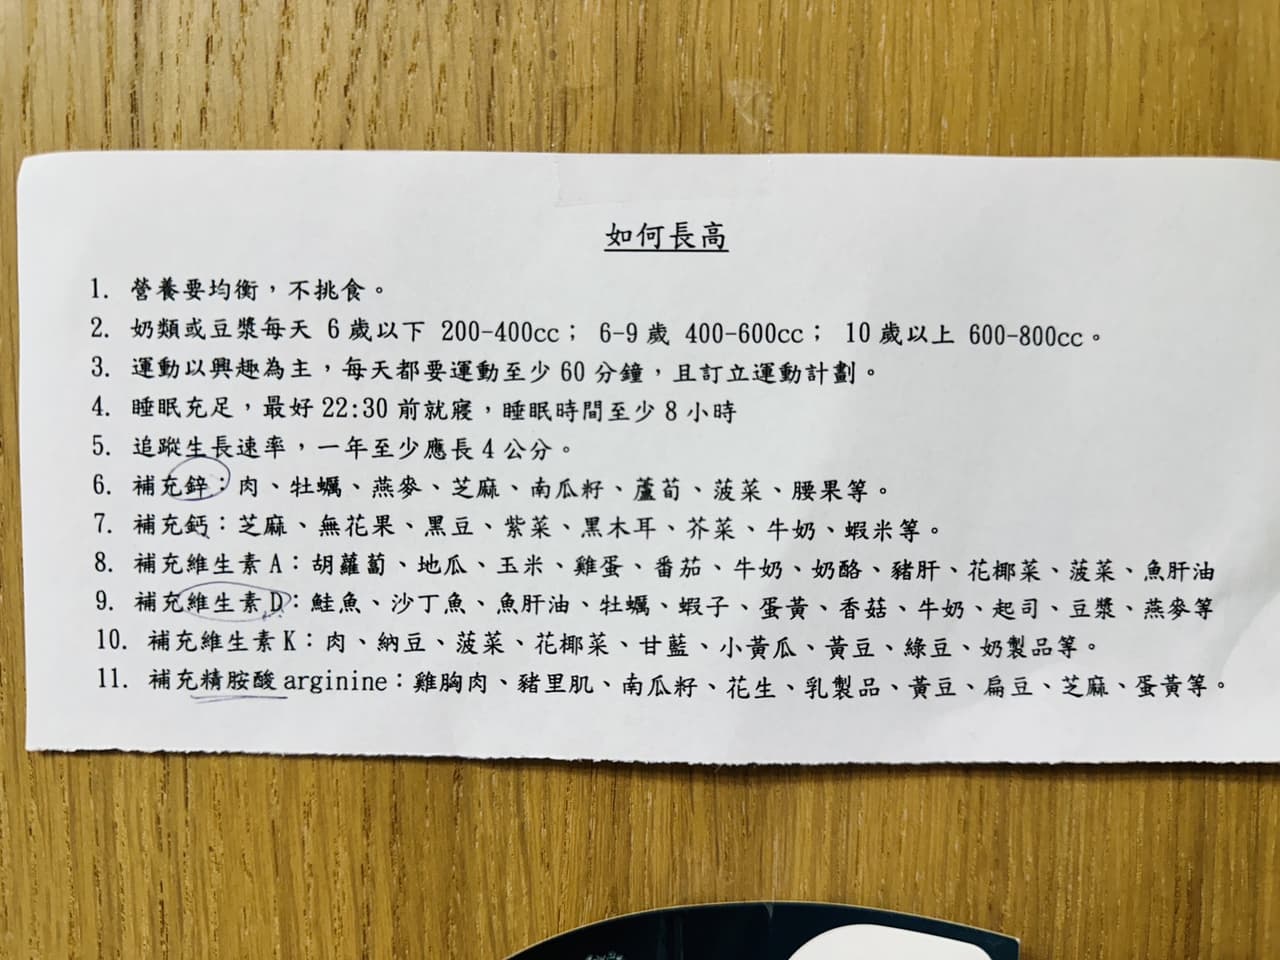 如何長高
1. 營養要均衡，不挑食。
2. 奶類或豆漿每天 6 歲以下 200-400cc； 6-9 歲 400-600cc； 10 歲以上 600-800cc。
3. 運動以興趣為主，每天都要運動至少 60 分鐘，且訂立運動計劃。
4. 睡眠充足，最好 22:30 前就寢，睡眠時間至少 8 小時
5. 追蹤生長速率，一年至少應長 4 公分。
6. 補充鋅：肉、牡蠣、燕麥、芝麻、南瓜籽、蘆荀、菠菜、腰果等。
7. 補充鈣：芝麻、無花果、黑豆、紫菜、黑木耳、芥菜、牛奶、蝦米等。
8. 補充維生素 A：胡蘿蔔、地瓜、玉米、雞蛋、番茄、牛奶、奶酪、豬肝、花椰菜、菠菜、魚肝油
9. 補充維生素 D：鮭魚、沙丁魚、魚肝油、牡蠣、蝦子、蛋黃、香菇、牛奶、起司、豆漿、燕麥等
10. 補充維生素 K：肉、納豆、菠菜、花椰菜、甘藍、小黃瓜、黃豆、綠豆、奶製品等。
11. 補充精胺酸 arginine：雞胸肉、豬里肌、南瓜籽、花生、乳製品、黃豆、扁豆、芝麻、蛋黃等。